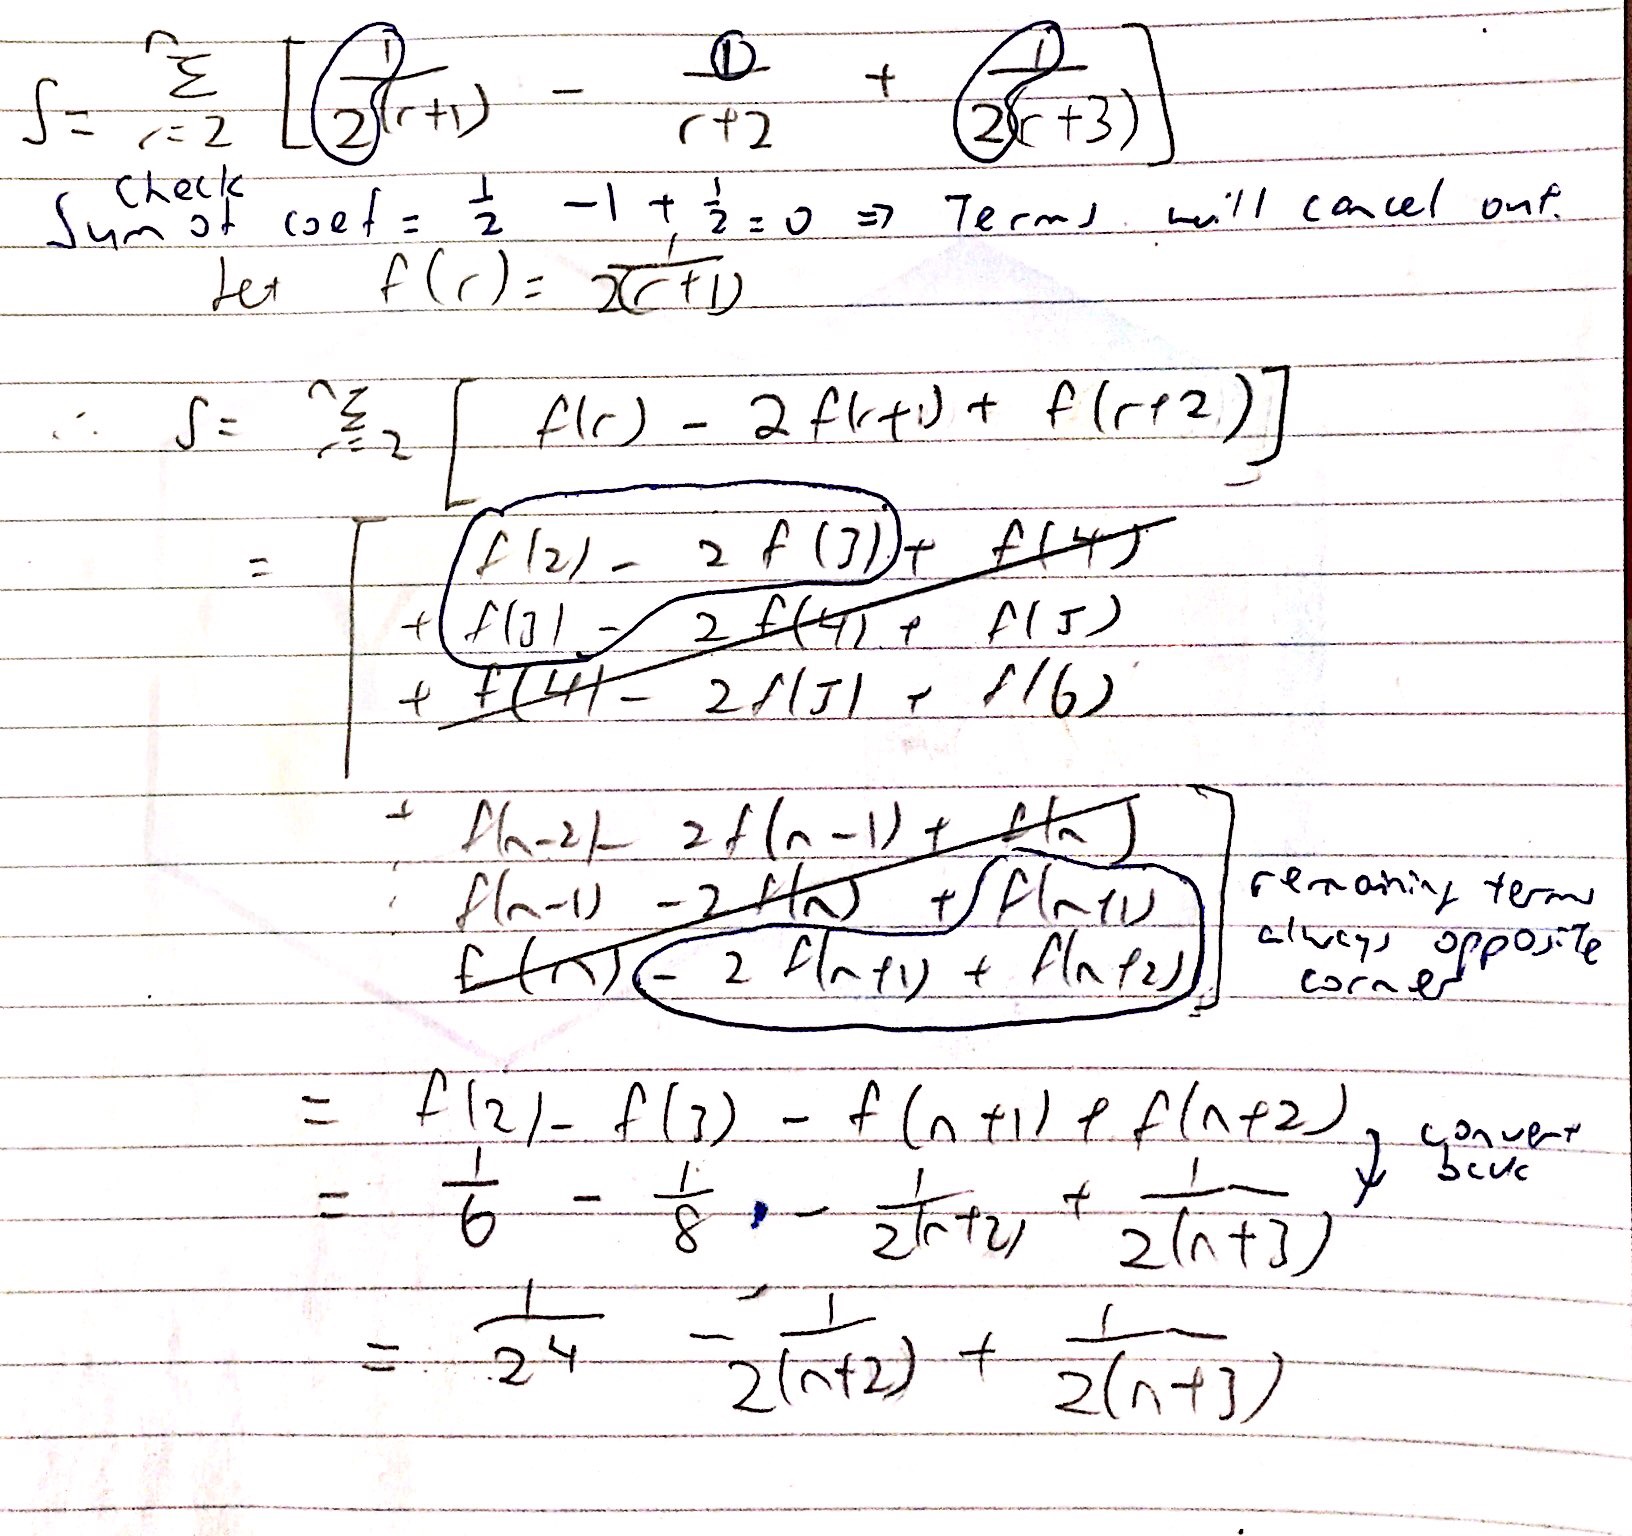 S = n Σ r=2 [ 1/2(r+1) - 1/r+2 + 1/2(r+3) ]
check
Sum of coef = 1/2 - 1 + 1/2 = 0 ⇒ Terms will cancel out.
Let f(r) = 1/2(r+1)
∴ S = n Σ r=2 [ f(r) - 2f(r+1) + f(r+2) ]
= [ f(2) - 2f(3) + f(4)
+ f(3) - 2f(4) + f(5)
+ f(4) - 2f(5) + f(6)
+ f(n-2) - 2f(n-1) + f(n)
f(n-1) - 2f(n) + f(n+1)
f(n) - 2f(n+1) + f(n+2) ]
remaining terms
always opposite
corner
= f(2) - f(3) - f(n+1) + f(n+2)
convert
back
= 1/6 - 1/8 - 1/2(n+2) + 1/2(n+3)
= 1/24 - 1/2(n+2) + 1/2(n+3)